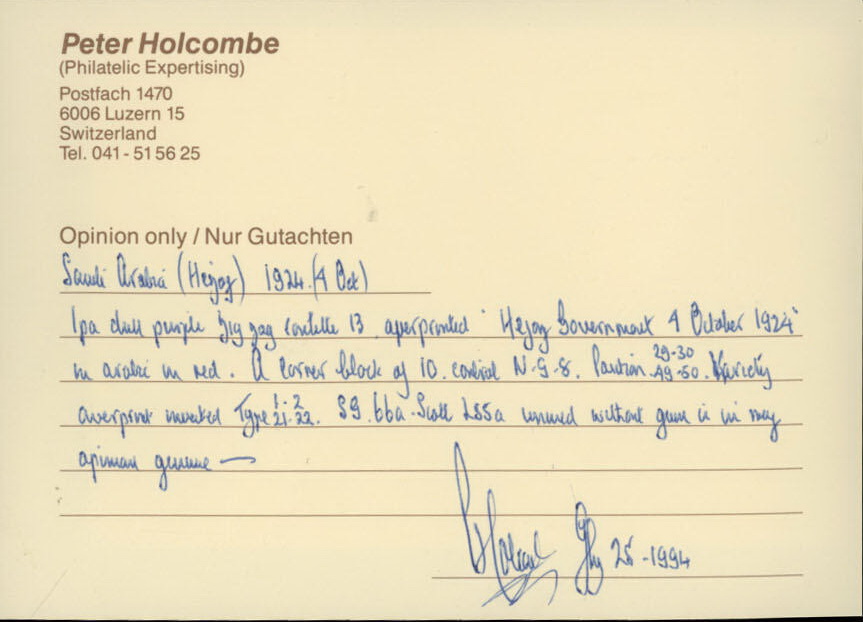 Peter Holcombe
(Philatelic Expertising)
Postfach 1470
6006 Luzern 15
Switzerland
Tel. 041 - 51 56 25
Opinion only / Nur Gutachten
Saudi Arabia (Hejaz) 1924 (4 Oct)
1pa dull purple zig zag roulette 13 overprinted "Hejaz Government 4 October 1924"
in arabic in red. A corner block of 10. control N-G-8. Position 29-30 49-50. Variety
overprint inverted Type 1-2 21-22. SG.66a-Scott L55a unused without gum is in my
opinion genuine —
25-1994